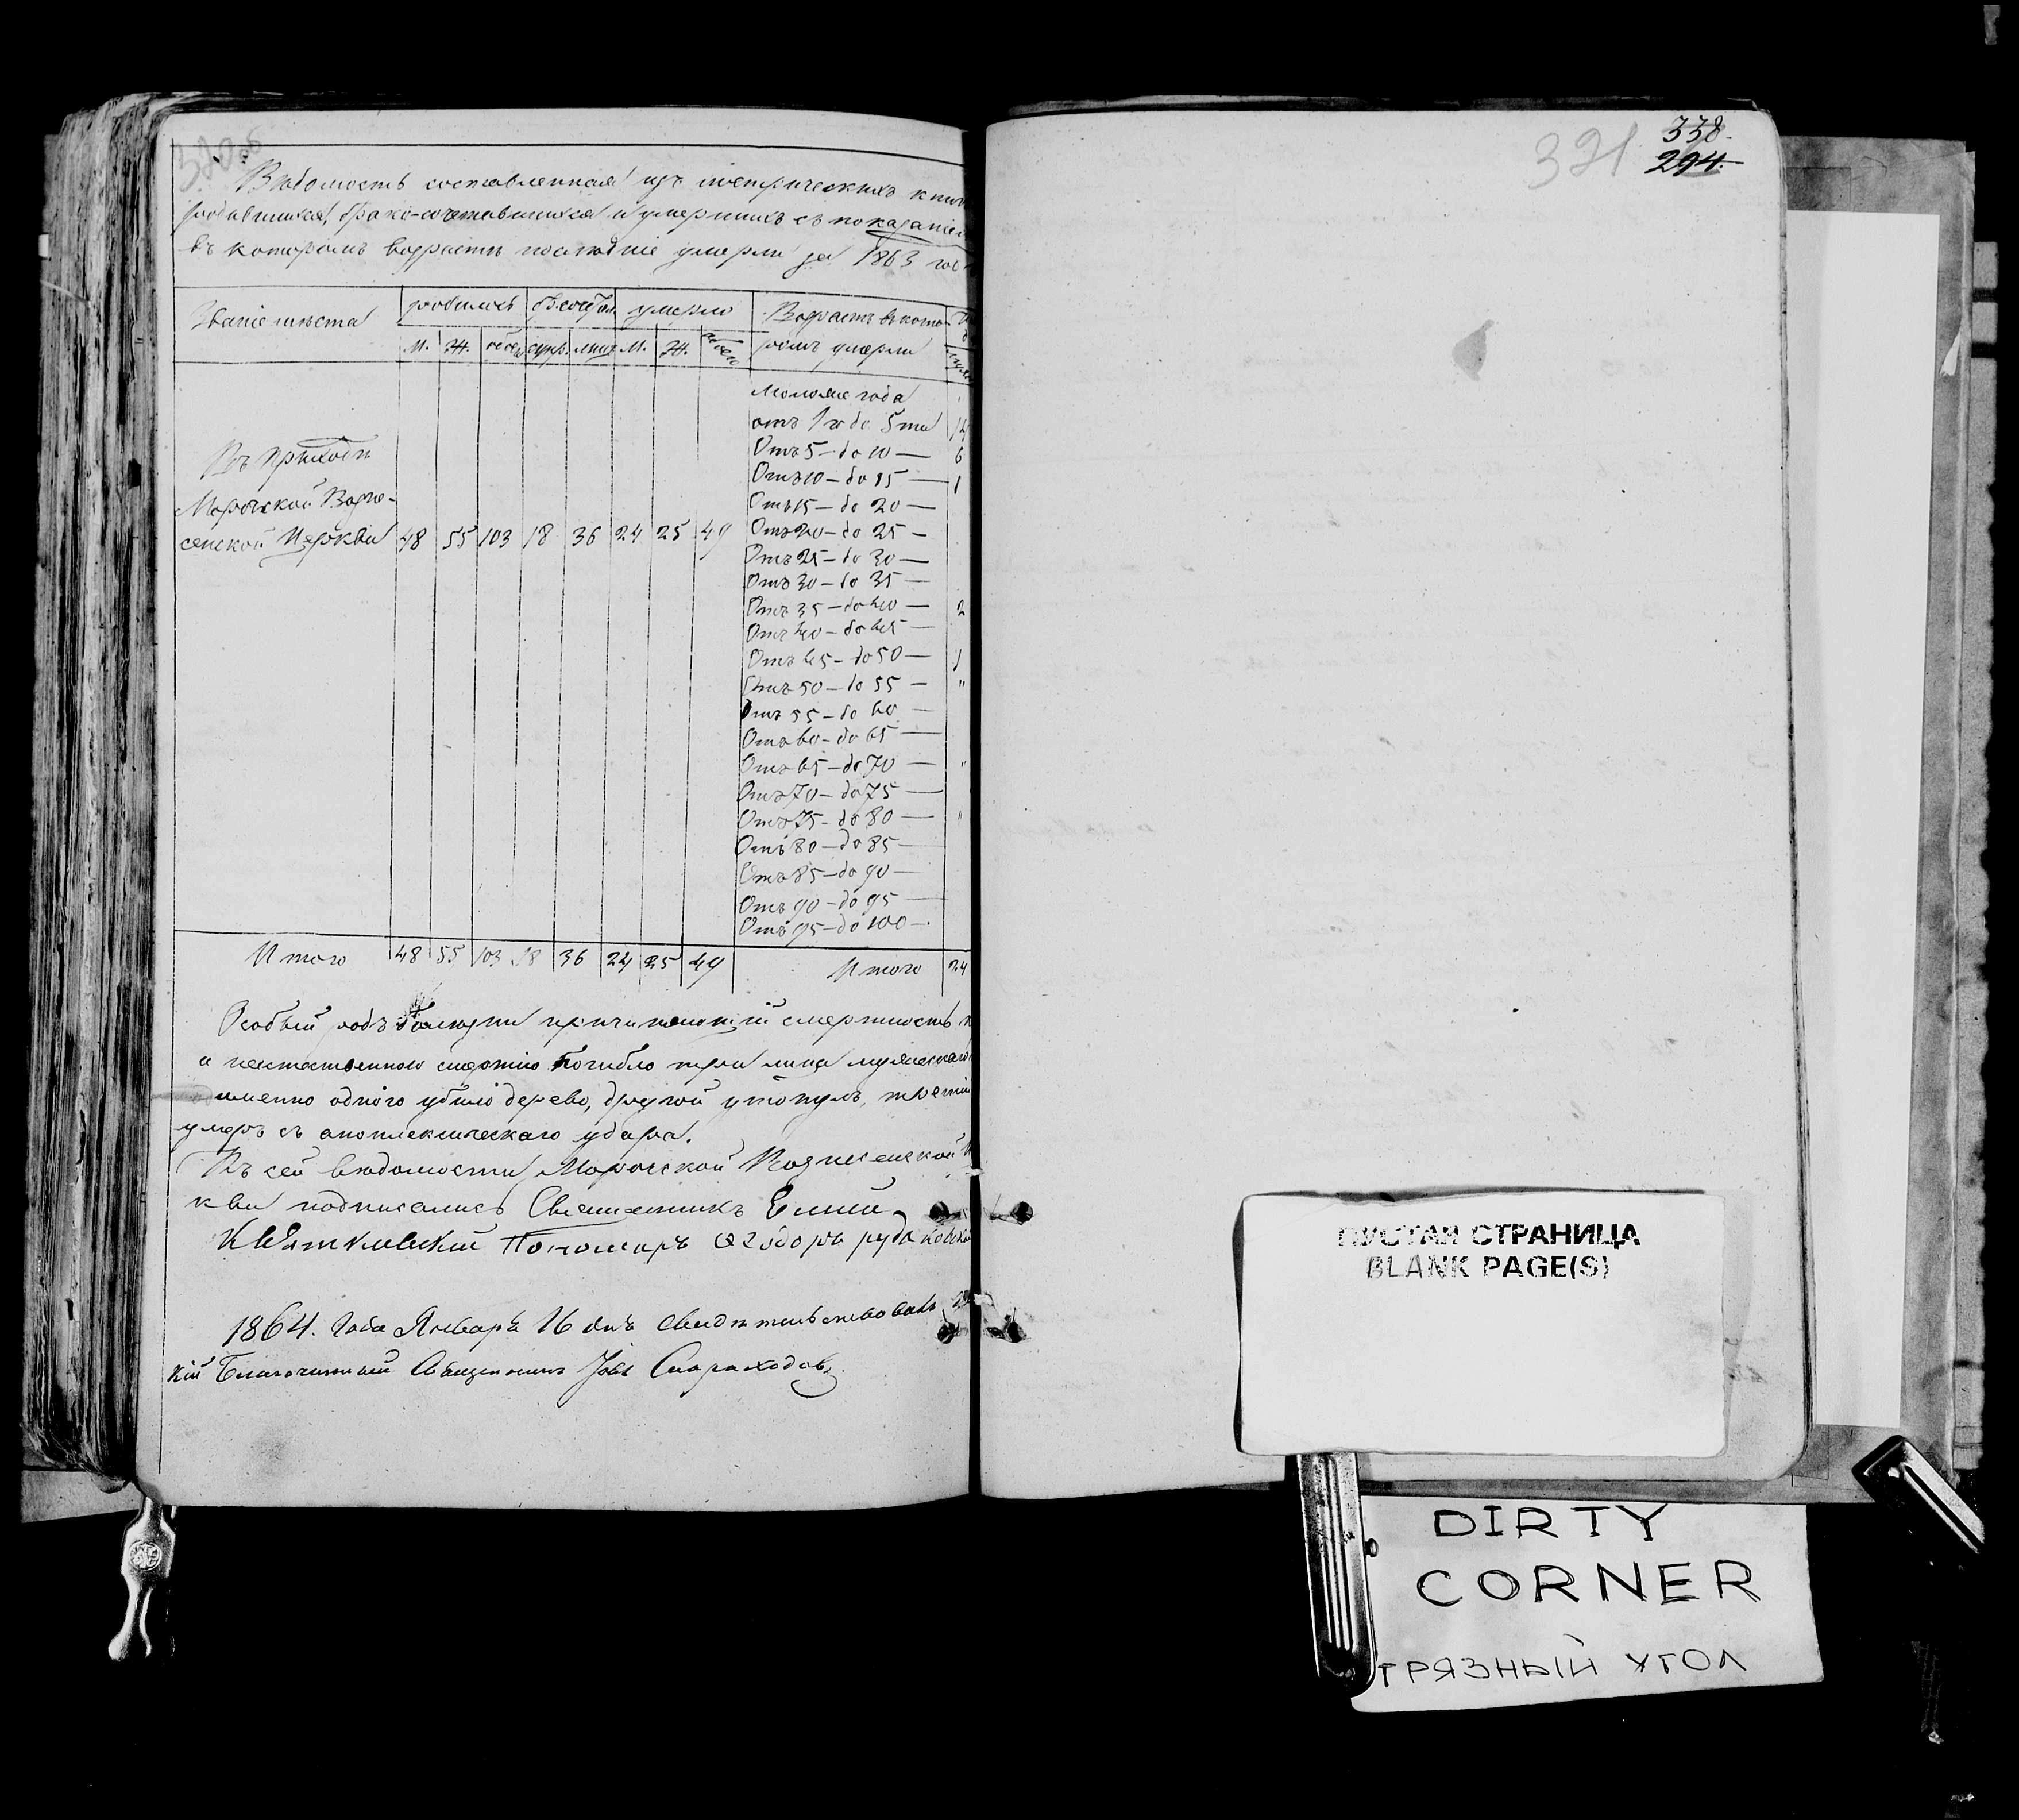 320об
Вѣдомость составленная изъ метрическихъ книг
родившихся, брако-сочетавшихся и умершихъ съ показаніем
въ которомъ возрастѣ послѣдніе умерли за 1863 год
Званіе мѣста
родилось
умерло
Возрастъ въ кото-
ромъ умерли
М. Ж. обоего супр. лицъ М. Ж. обоего
Моложе года
отъ 1 го до 5 ти
Отъ 5 – до 10 — 6
Отъ 10 – до 15 — 1
Отъ 15 – до 20 —
Отъ 20 – до 25 —
Отъ 25 – до 30 —
Отъ 30 – до 35 —
Отъ 35 – до 40 — 2
Отъ 40 – до 45 —
Отъ 45 – до 50 — 1
Отъ 50 – до 55 — "
Отъ 55 – до 60 —
Отъ 60 – до 65 —
Отъ 65 – до 70 — "
Отъ 70 – до 75 —
Отъ 75 – до 80 — "
Отъ 80 – до 85 —
Отъ 85 – до 90 —
Отъ 90 – до 95 —
Отъ 95 – до 100 —
Въ приходѣ
Морочской Возне-
сенской Церкви 48 55 103 18 36 24 25 49
Итого 48 55 103 18 36 24 25 49 Итого 24
Особый родъ болѣзни причиняющій смертность
и неестественною смертію погибло три лица мужескаго
именно одного убило дерево, другой утонулъ, третій
умеръ съ апоплексическаго удара.
Къ сей вѣдомости Морочской Вознесенской
кви подписались Священникъ Елий
Квятковскій Пономаръ Ѳеодоръ рудаковски
1864. Года Января 16 дня свидѣтельствовалъ
кій Благочинный Священникъ Іовъ
321
338.
294.
ПУСТАЯ СТРАНИЦА
BLANK PAGE(S)
DIRTY
CORNER
ГРЯЗНЫЙ УГОЛ